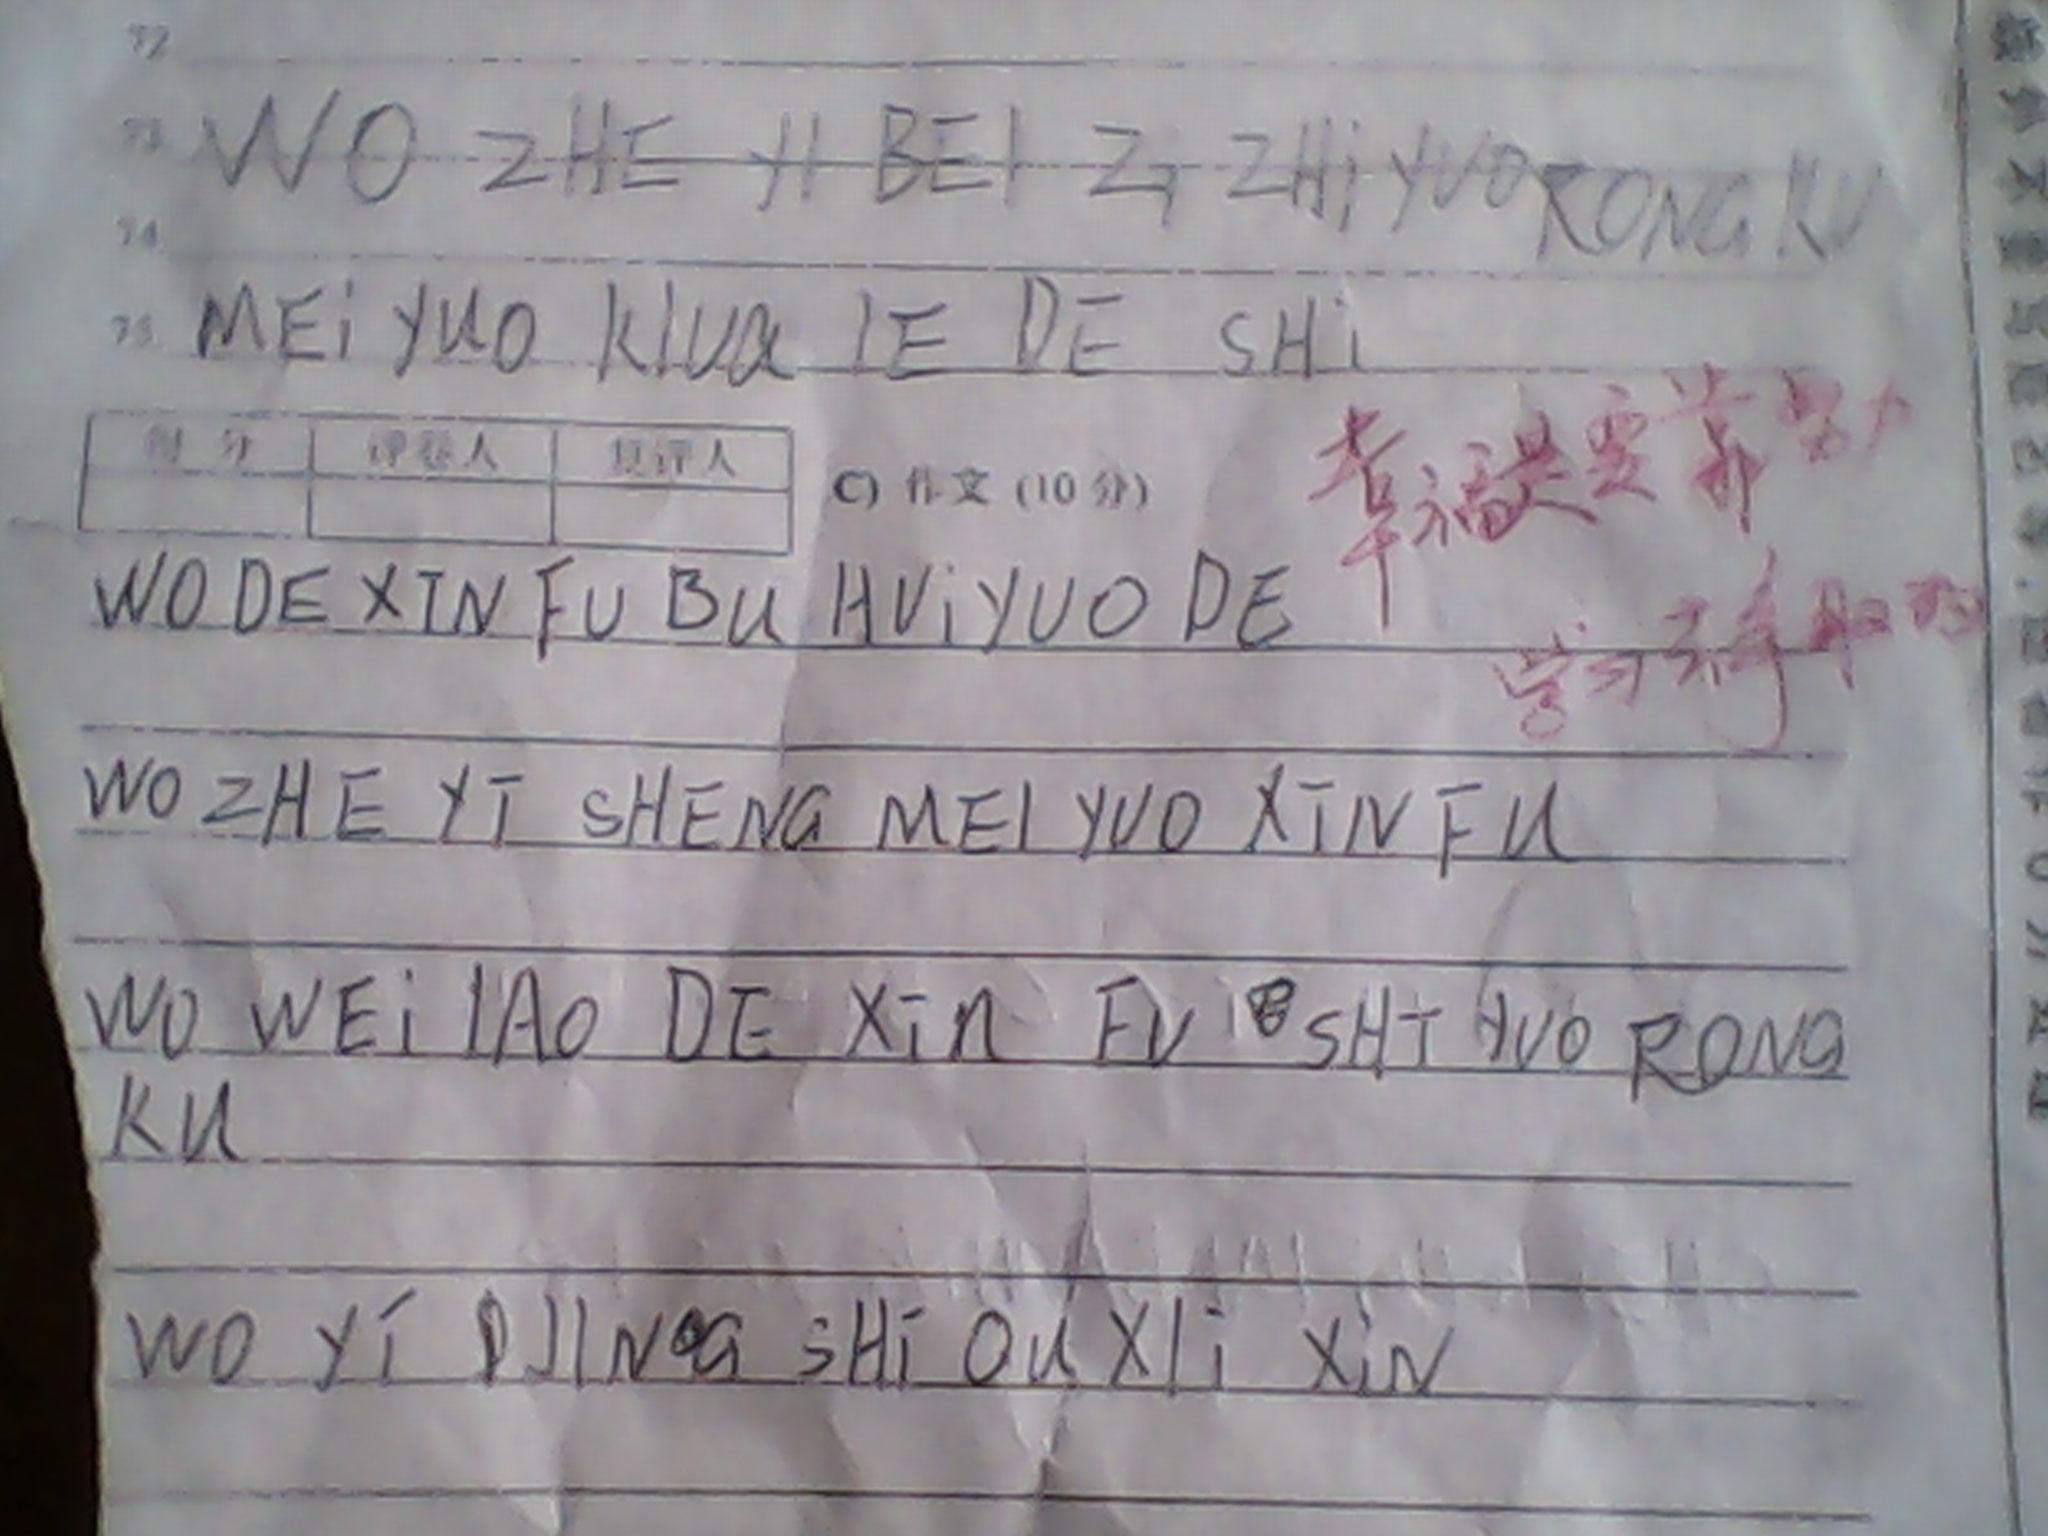 72
73 WO ZHE YI BEI Zi ZHi YUO RONG KU
74
75 MEi YUO KIUA lE DE SHi
得 分 评卷人 复评人
C) 作文 (10 分)
幸福是要靠努力
学习来争取的
WO DE XIN FU BU HUi YUO DE
WO ZHE YI SHENG MEI YUO XIN FU
WO WEi lAO DE XiN FU SHI YUO RONG
KU
WO YI JING SHi QU XIi XiN